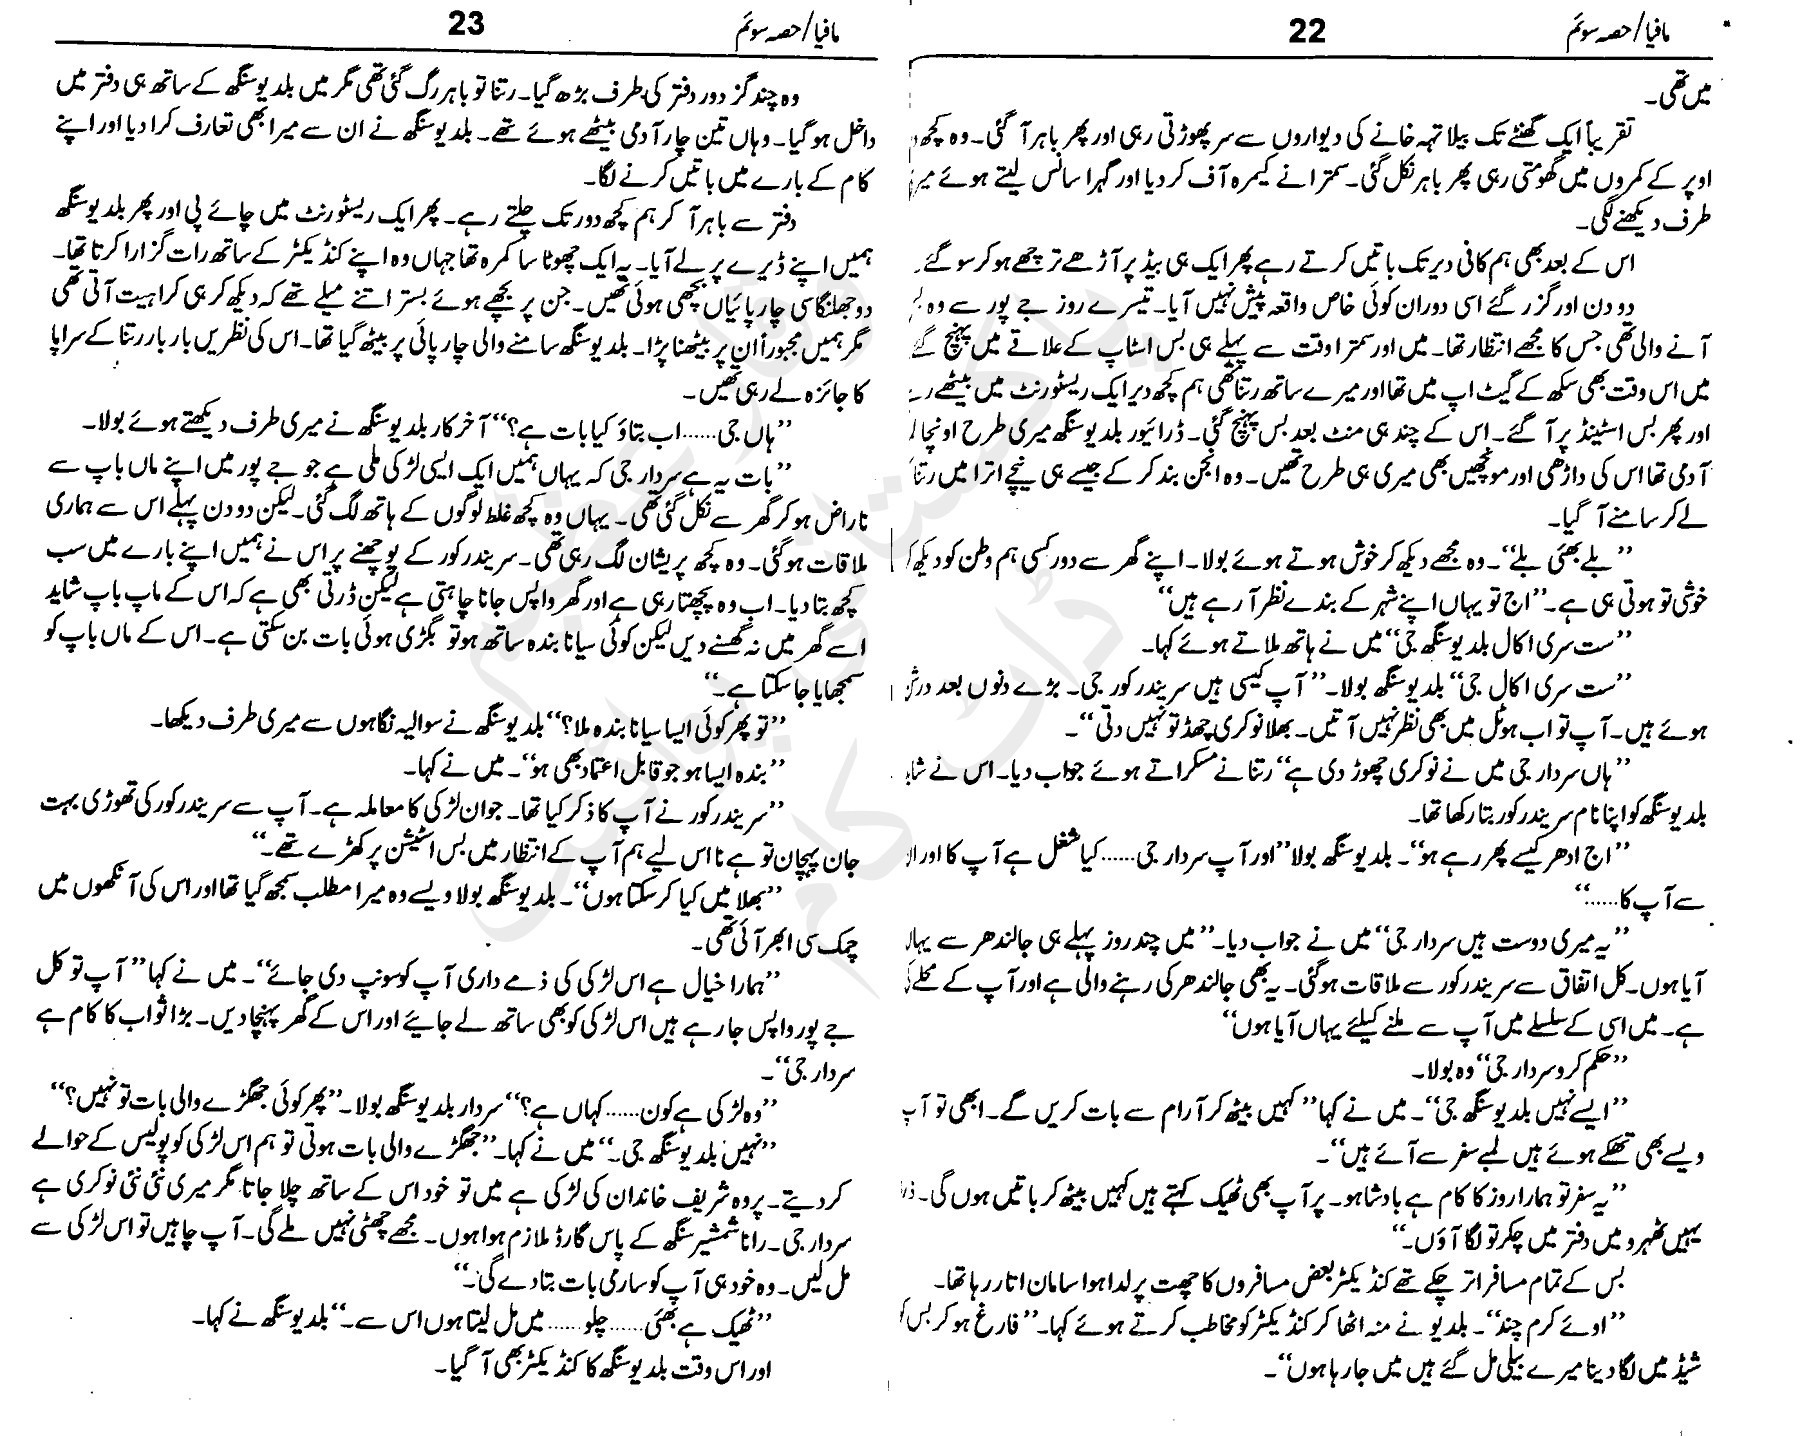 مافیا/حصہ سوئم
22
میں تھی۔
تقریباً ایک گھنٹے تک بیلا تہہ خانے کی دیواروں سے سر پھوڑتی رہی اور پھر باہر آ گئی۔ وہ کچھ
اوپر کے کمروں میں گھومتی رہی پھر باہر نکل گئی۔ سمترا نے کیمرہ آف کر دیا اور گہرا سانس لیتے ہوئے
طرف دیکھنے لگی۔
اس کے بعد بھی ہم کافی دیر تک باتیں کرتے رہے پھر ایک ہی بیڈ پر آڑھے ترچھے ہو کر سو گئے۔
دو دن اور گزر گئے اسی دوران کوئی خاص واقعہ پیش نہیں آیا۔ تیسرے روز جے پور سے وہ
آنے والی تھی جس کا مجھے انتظار تھا۔ میں اور سمترا وقت سے پہلے ہی بس اسٹاپ کے علاقے میں پہنچ گئے
میں اس وقت بھی سکھ کے گیٹ اپ میں تھا اور میرے ساتھ رتنا تھی ہم کچھ دیر ایک ریسٹورنٹ میں بیٹھے
اور پھر بس اسٹینڈ پر آ گئے۔ اس کے چند ہی منٹ بعد بس پہنچ گئی۔ ڈرائیور بلدیو سنگھ میری طرح اونچا
آدمی تھا اس کی داڑھی اور مونچھیں بھی میری ہی طرح تھیں۔ وہ انجن بند کر کے جیسے ہی نیچے اترا میں رتنا
لے کر سامنے آ گیا۔
”بلے بھئی بلے“۔ وہ مجھے دیکھ کر خوش ہوتے ہوئے بولا۔ اپنے گھر سے دور کسی ہم وطن کو دیکھ
خوشی تو ہوتی ہی ہے۔ ”اج تو یہاں اپنے شہر کے بندے نظر آ رہے ہیں“
”ست سری اکال بلدیو سنگھ جی“ میں نے ہاتھ ملاتے ہوئے کہا۔
”ست سری اکال جی“ بلدیو سنگھ بولا۔ ”آپ کیسی ہیں سریندر کور جی۔ بڑے دنوں بعد درش
ہوئے ہیں۔ آپ تو اب ہوٹل میں بھی نظر نہیں آتیں۔ بھلا نوکری چھڈ تو نہیں دتی“۔
”ہاں سردار جی میں نے نوکری چھوڑ دی ہے“ رتنا نے مسکراتے ہوئے جواب دیا۔ اس نے
بلدیو سنگھ کو اپنا نام سریندر کور بتا رکھا تھا۔
”اج ادھر کیسے پھر رہے ہو“۔ بلدیو سنگھ بولا ”اور آپ سردار جی...... کیا شغل ہے آپ کا اور
سے آپ کا......“
”یہ میری دوست ہیں سردار جی“ میں نے جواب دیا۔ ”میں چند روز پہلے ہی جالندھر سے یہاں
آیا ہوں۔ کل اتفاق سے سریندر کور سے ملاقات ہو گئی۔ یہ بھی جالندھر کی رہنے والی ہے اور آپ کے محلے
ہے۔ میں اسی کے سلسلے میں آپ سے ملنے کیلئے یہاں آیا ہوں“
”حکم کرو سردار جی“ وہ بولا۔
”ایسے نہیں بلدیو سنگھ جی“۔ میں نے کہا ”کہیں بیٹھ کر آرام سے بات کریں گے۔ ابھی تو آپ
ویسے بھی تھکے ہوئے ہیں لمبے سفر سے آئے ہیں“۔
”یہ سفر تو ہمارا روز کا کام ہے بادشاہو۔ پر آپ بھی ٹھیک کہتے ہیں کہیں بیٹھ کر باتیں ہوں گی۔
یہیں ٹھہرو میں دفتر میں چکر تو لگا آؤں۔“
بس کے تمام مسافر اتر چکے تھے کنڈیکٹر بعض مسافروں کا چھت پر لدا ہوا سامان اتار رہا تھا۔
”اوئے کرم چند“۔ بلدیو نے منہ اٹھا کر کنڈیکٹر کو مخاطب کرتے ہوئے کہا۔ ”فارغ ہو کر بس
شیڈ میں لگا دینا میرے بیلی مل گئے ہیں میں جا رہا ہوں“۔
مافیا/حصہ سوئم
23
وہ چند گز دور دفتر کی طرف بڑھ گیا۔ رتنا تو باہر رک گئی تھی مگر میں بلدیو سنگھ کے ساتھ ہی دفتر میں
داخل ہو گیا۔ وہاں تین چار آدمی بیٹھے ہوئے تھے۔ بلدیو سنگھ نے ان سے میرا بھی تعارف کرا دیا اور اپنے
کام کے بارے میں باتیں کرنے لگا۔
دفتر سے باہر آ کر ہم کچھ دور تک چلتے رہے۔ پھر ایک ریسٹورنٹ میں چائے پی اور پھر بلدیو سنگھ
ہمیں اپنے ڈیرے پر لے آیا۔ یہ ایک چھوٹا سا کمرہ تھا جہاں وہ اپنے کنڈیکٹر کے ساتھ رات گزارا کرتا تھا۔
دو جھلنگا سی چارپائیاں بچھی ہوئی تھیں۔ جن پر بچھے ہوئے بستر اتنے میلے تھے کہ دیکھ کر ہی کراہیت آتی تھی
مگر ہمیں مجبوراً ان پر بیٹھنا پڑا۔ بلدیو سنگھ سامنے والی چارپائی پر بیٹھ گیا تھا۔ اس کی نظریں بار بار رتنا کے سراپا
کا جائزہ لے رہی تھیں۔
”ہاں جی...... اب بتاؤ کیا بات ہے؟“ آخر کار بلدیو سنگھ نے میری طرف دیکھتے ہوئے بولا۔
”بات یہ ہے سردار جی کہ یہاں ہمیں ایک ایسی لڑکی ملی ہے جو جے پور میں اپنے ماں باپ سے
ناراض ہو کر گھر سے نکل گئی تھی۔ یہاں وہ کچھ غلط لوگوں کے ہاتھ لگ گئی۔ لیکن دو دن پہلے اس سے ہماری
ملاقات ہو گئی۔ وہ کچھ پریشان لگ رہی تھی۔ سریندر کور کے پوچھنے پر اس نے ہمیں اپنے بارے میں سب
کچھ بتا دیا۔ اب وہ پچھتا رہی ہے اور گھر واپس جانا چاہتی ہے لیکن ڈرتی بھی ہے کہ اس کے ماں باپ شاید
اسے گھر میں نہ گھسنے دیں لیکن کوئی سیانا بندہ ساتھ ہو تو بگڑی ہوئی بات بن سکتی ہے۔ اس کے ماں باپ کو
سمجھایا جا سکتا ہے۔“
”تو پھر کوئی ایسا سیانا بندہ ملا؟“ بلدیو سنگھ نے سوالیہ نگاہوں سے میری طرف دیکھا۔
”بندہ ایسا ہو جو قابل اعتماد بھی ہو“۔ میں نے کہا۔
”سریندر کور نے آپ کا ذکر کیا تھا۔ جوان لڑکی کا معاملہ ہے۔ آپ سے سریندر کور کی تھوڑی بہت
جان پہچان تو ہے نا اس لیے ہم آپ کے انتظار میں بس اسٹیشن پر کھڑے تھے۔“
”بھلا میں کیا کر سکتا ہوں“۔ بلدیو سنگھ بولا ویسے وہ میرا مطلب سمجھ گیا تھا اور اس کی آنکھوں میں
چمک سی ابھر آئی تھی۔
”ہمارا خیال ہے اس لڑکی کی ذمے داری آپ کو سونپ دی جائے“۔ میں نے کہا ”آپ تو کل
جے پور واپس جا رہے ہیں اس لڑکی کو بھی ساتھ لے جایئے اور اس کے گھر پہنچا دیں۔ بڑا ثواب کا کام ہے
سردار جی“۔
”وہ لڑکی ہے کون...... کہاں ہے؟“ سردار بلدیو سنگھ بولا۔ ”پھر کوئی جھگڑے والی بات تو نہیں؟“
”نہیں بلدیو سنگھ جی۔“ میں نے کہا۔ ”جھگڑے والی بات ہوتی تو ہم اس لڑکی کو پولیس کے حوالے
کر دیتے۔ پر وہ شریف خاندان کی لڑکی ہے میں تو خود اس کے ساتھ چلا جاتا مگر میری نئی نئی نوکری ہے
سردار جی۔ رانا شمشیر سنگھ کے پاس گارڈ ملازم ہوا ہوں۔ مجھے چھٹی نہیں ملے گی۔ آپ چاہیں تو اس لڑکی سے
مل لیں۔ وہ خود ہی آپ کو ساری بات بتا دے گی۔“
”ٹھیک ہے بھئی...... چلو...... میں مل لیتا ہوں اس سے۔“ بلدیو سنگھ نے کہا۔
اور اس وقت بلدیو سنگھ کا کنڈیکٹر بھی آ گیا۔